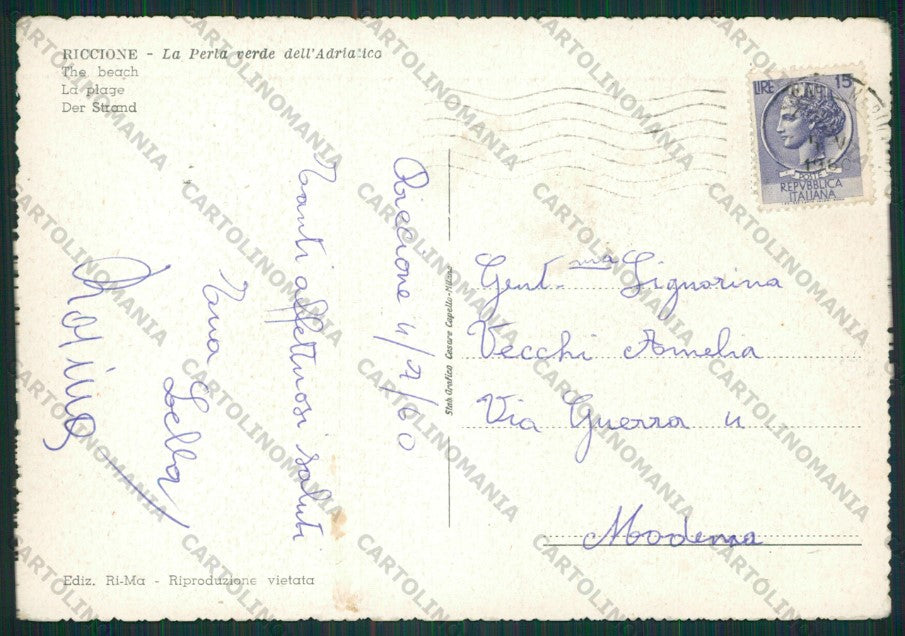 RICCIONE - La Perla verde dell'Adriatico
The beach
La plage
Der Strand
LIRE 15
POSTE
REPVBBLICA
ITALIANA
1960
Riccione 4/7/60
Tanti affettuosi saluti
Lella
Rosina
Stab. Grafico Cesare Capello - Milano
Gent.ma Signorina
Vecchi Amelia
Via Guerra 4
Modena
Ediz. Ri-Ma - Riproduzione vietata
CARTOLINOMANIA